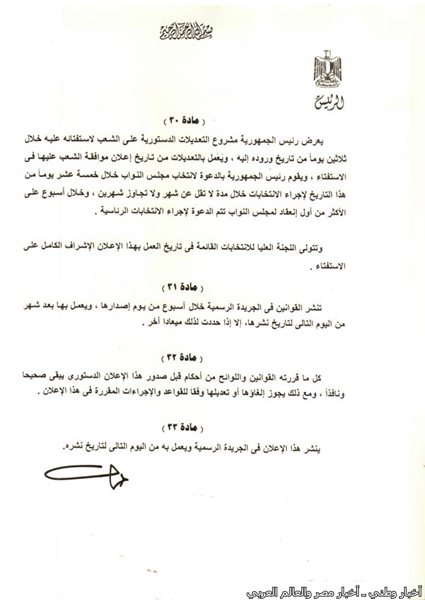 بسم الله الرحمن الرحيم
الرئيس
( مادة ٣٠ )
يعرض رئيس الجمهورية مشروع التعديلات الدستورية على الشعب لاستفتائه عليه خلال
ثلاثين يوماً من تاريخ وروده إليه ، ويعمل بالتعديلات من تاريخ إعلان موافقة الشعب عليها فى
الاستفتاء ، ويقوم رئيس الجمهورية بالدعوة لانتخاب مجلس النواب خلال خمسة عشر يوماً من
هذا التاريخ لإجراء الانتخابات خلال مدة لا تقل عن شهر ولا تجاوز شهرين ، وخلال أسبوع على
الأكثر من أول إنعقاد لمجلس النواب تتم الدعوة لإجراء الانتخابات الرئاسية .
وتتولى اللجنة العليا للانتخابات القائمة فى تاريخ العمل بهذا الإعلان الإشراف الكامل على
الاستفتاء .
( مادة ٣١ )
تنشر القوانين فى الجريدة الرسمية خلال أسبوع من يوم إصدارها ، ويعمل بها بعد شهر
من اليوم التالى لتاريخ نشرها، إلا إذا حددت لذلك ميعادا آخر .
( مادة ٣٢ )
كل ما قررته القوانين واللوائح من أحكام قبل صدور هذا الإعلان الدستورى يبقى صحيحا
ونافذاً ، ومع ذلك يجوز إلغاؤها أو تعديلها وفقا للقواعد والإجراءات المقررة فى هذا الإعلان .
( مادة ٣٣ )
ينشر هذا الإعلان فى الجريدة الرسمية ويعمل به من اليوم التالى لتاريخ نشره.
أخبار وطني - أخبار مصر والعالم العربي